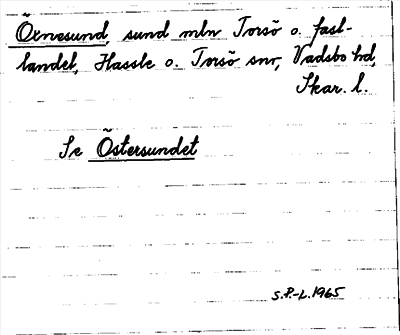 Örnesund, sund mln Torsö o. fast-
landet, Hassle o. Torsö snr, Vadsbo hd,
Skar. l.
Se Östersundet
S.P.-L. 1965